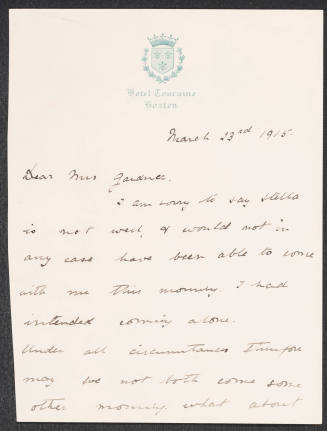 Hotel Touraine
Boston
March 23rd 1915.
Dear Mrs Gardner.
I am sorry to say Stella
is not well, & would not in
any case have been able to come
with me this morning. I had
intended coming alone.
Under all circumstances therefore
may we not both come some
other morning. what about